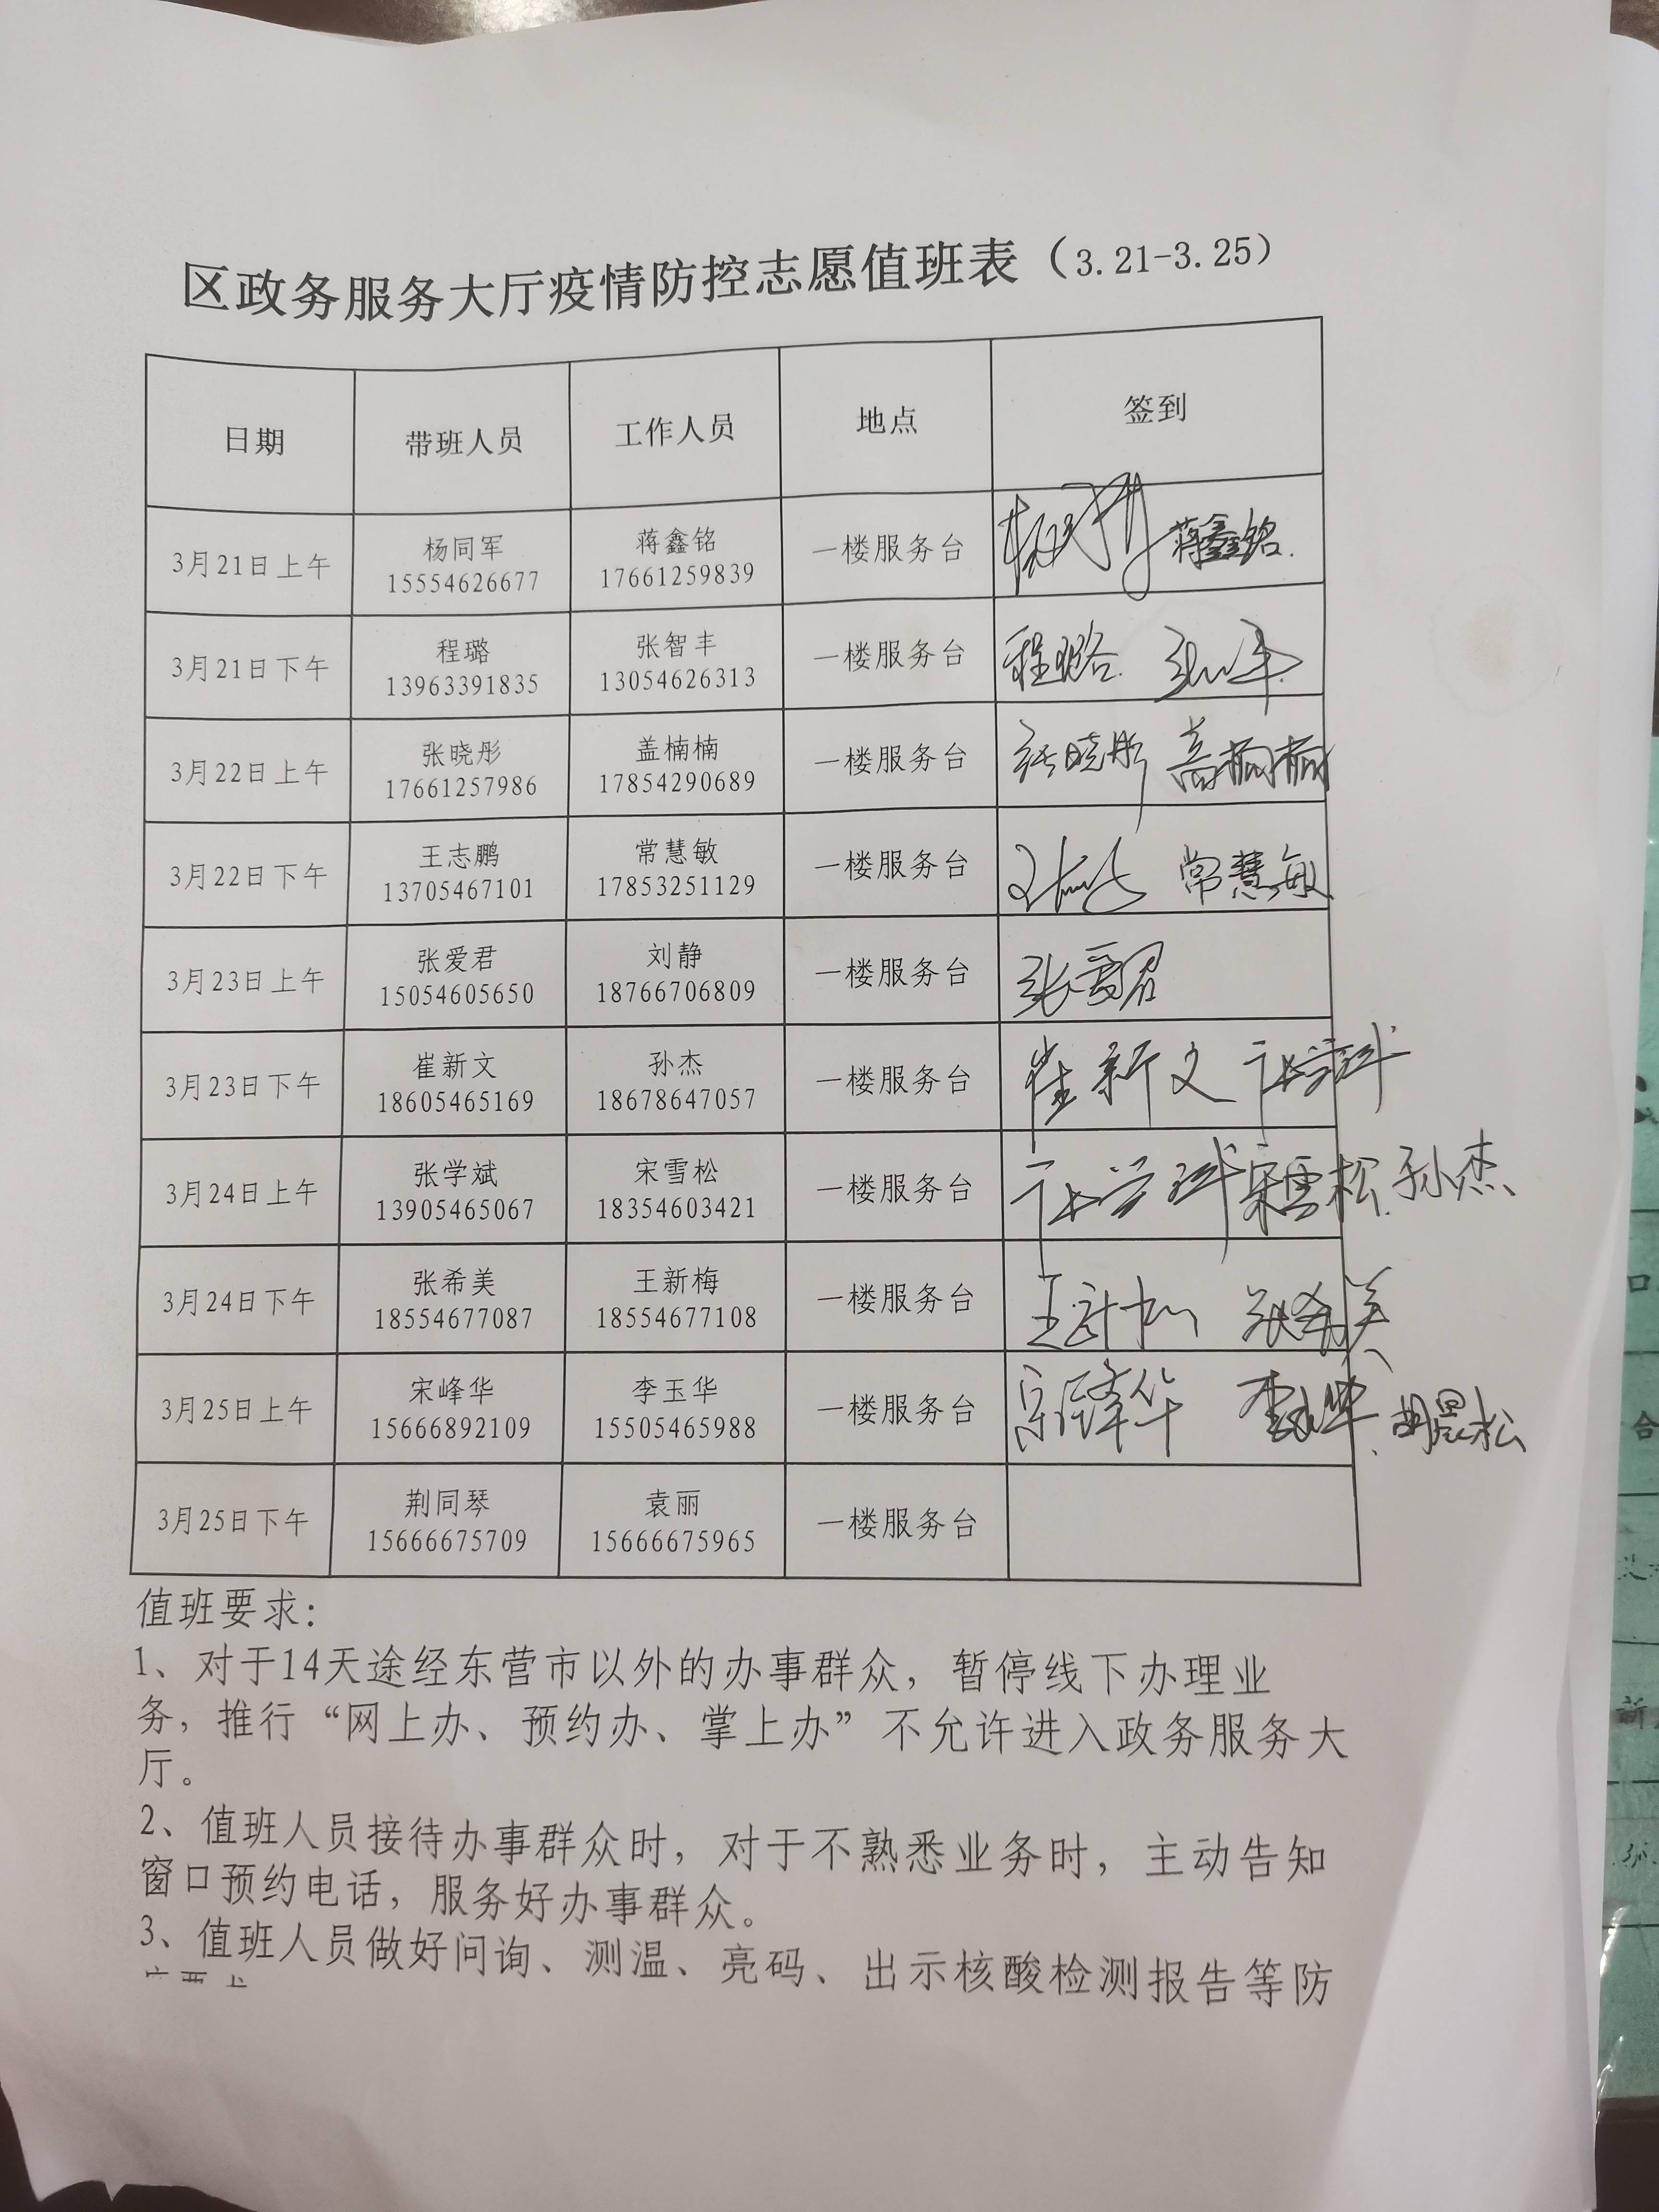 区政务服务大厅疫情防控志愿值班表（3.21-3.25）
日期 带班人员 工作人员 地点 签到
3月21日上午 杨同军 15554626677 蒋鑫铭 17661259839 一楼服务台 蒋鑫铭
3月21日下午 程璐 13963391835 张智丰 13054626313 一楼服务台 程璐
3月22日上午 张晓彤 17661257986 盖楠楠 17854290689 一楼服务台 张晓彤 盖楠楠
3月22日下午 王志鹏 13705467101 常慧敏 17853251129 一楼服务台 常慧敏
3月23日上午 张爱君 15054605650 刘静 18766706809 一楼服务台 张爱君
3月23日下午 崔新文 18605465169 孙杰 18678647057 一楼服务台 崔新文 张学斌
3月24日上午 张学斌 13905465067 宋雪松 18354603421 一楼服务台 张学斌 宋雪松 孙杰
3月24日下午 张希美 18554677087 王新梅 18554677108 一楼服务台 王新梅 张希美
3月25日上午 宋峰华 15666892109 李玉华 15505465988 一楼服务台 宋峰华 李玉华 胡晨松
3月25日下午 荆同琴 15666675709 袁丽 15666675965 一楼服务台
值班要求：
1、对于14天途经东营市以外的办事群众，暂停线下办理业
务，推行“网上办、预约办、掌上办”不允许进入政务服务大
厅。
2、值班人员接待办事群众时，对于不熟悉业务时，主动告知
窗口预约电话，服务好办事群众。
3、值班人员做好问询、测温、亮码、出示核酸检测报告等防